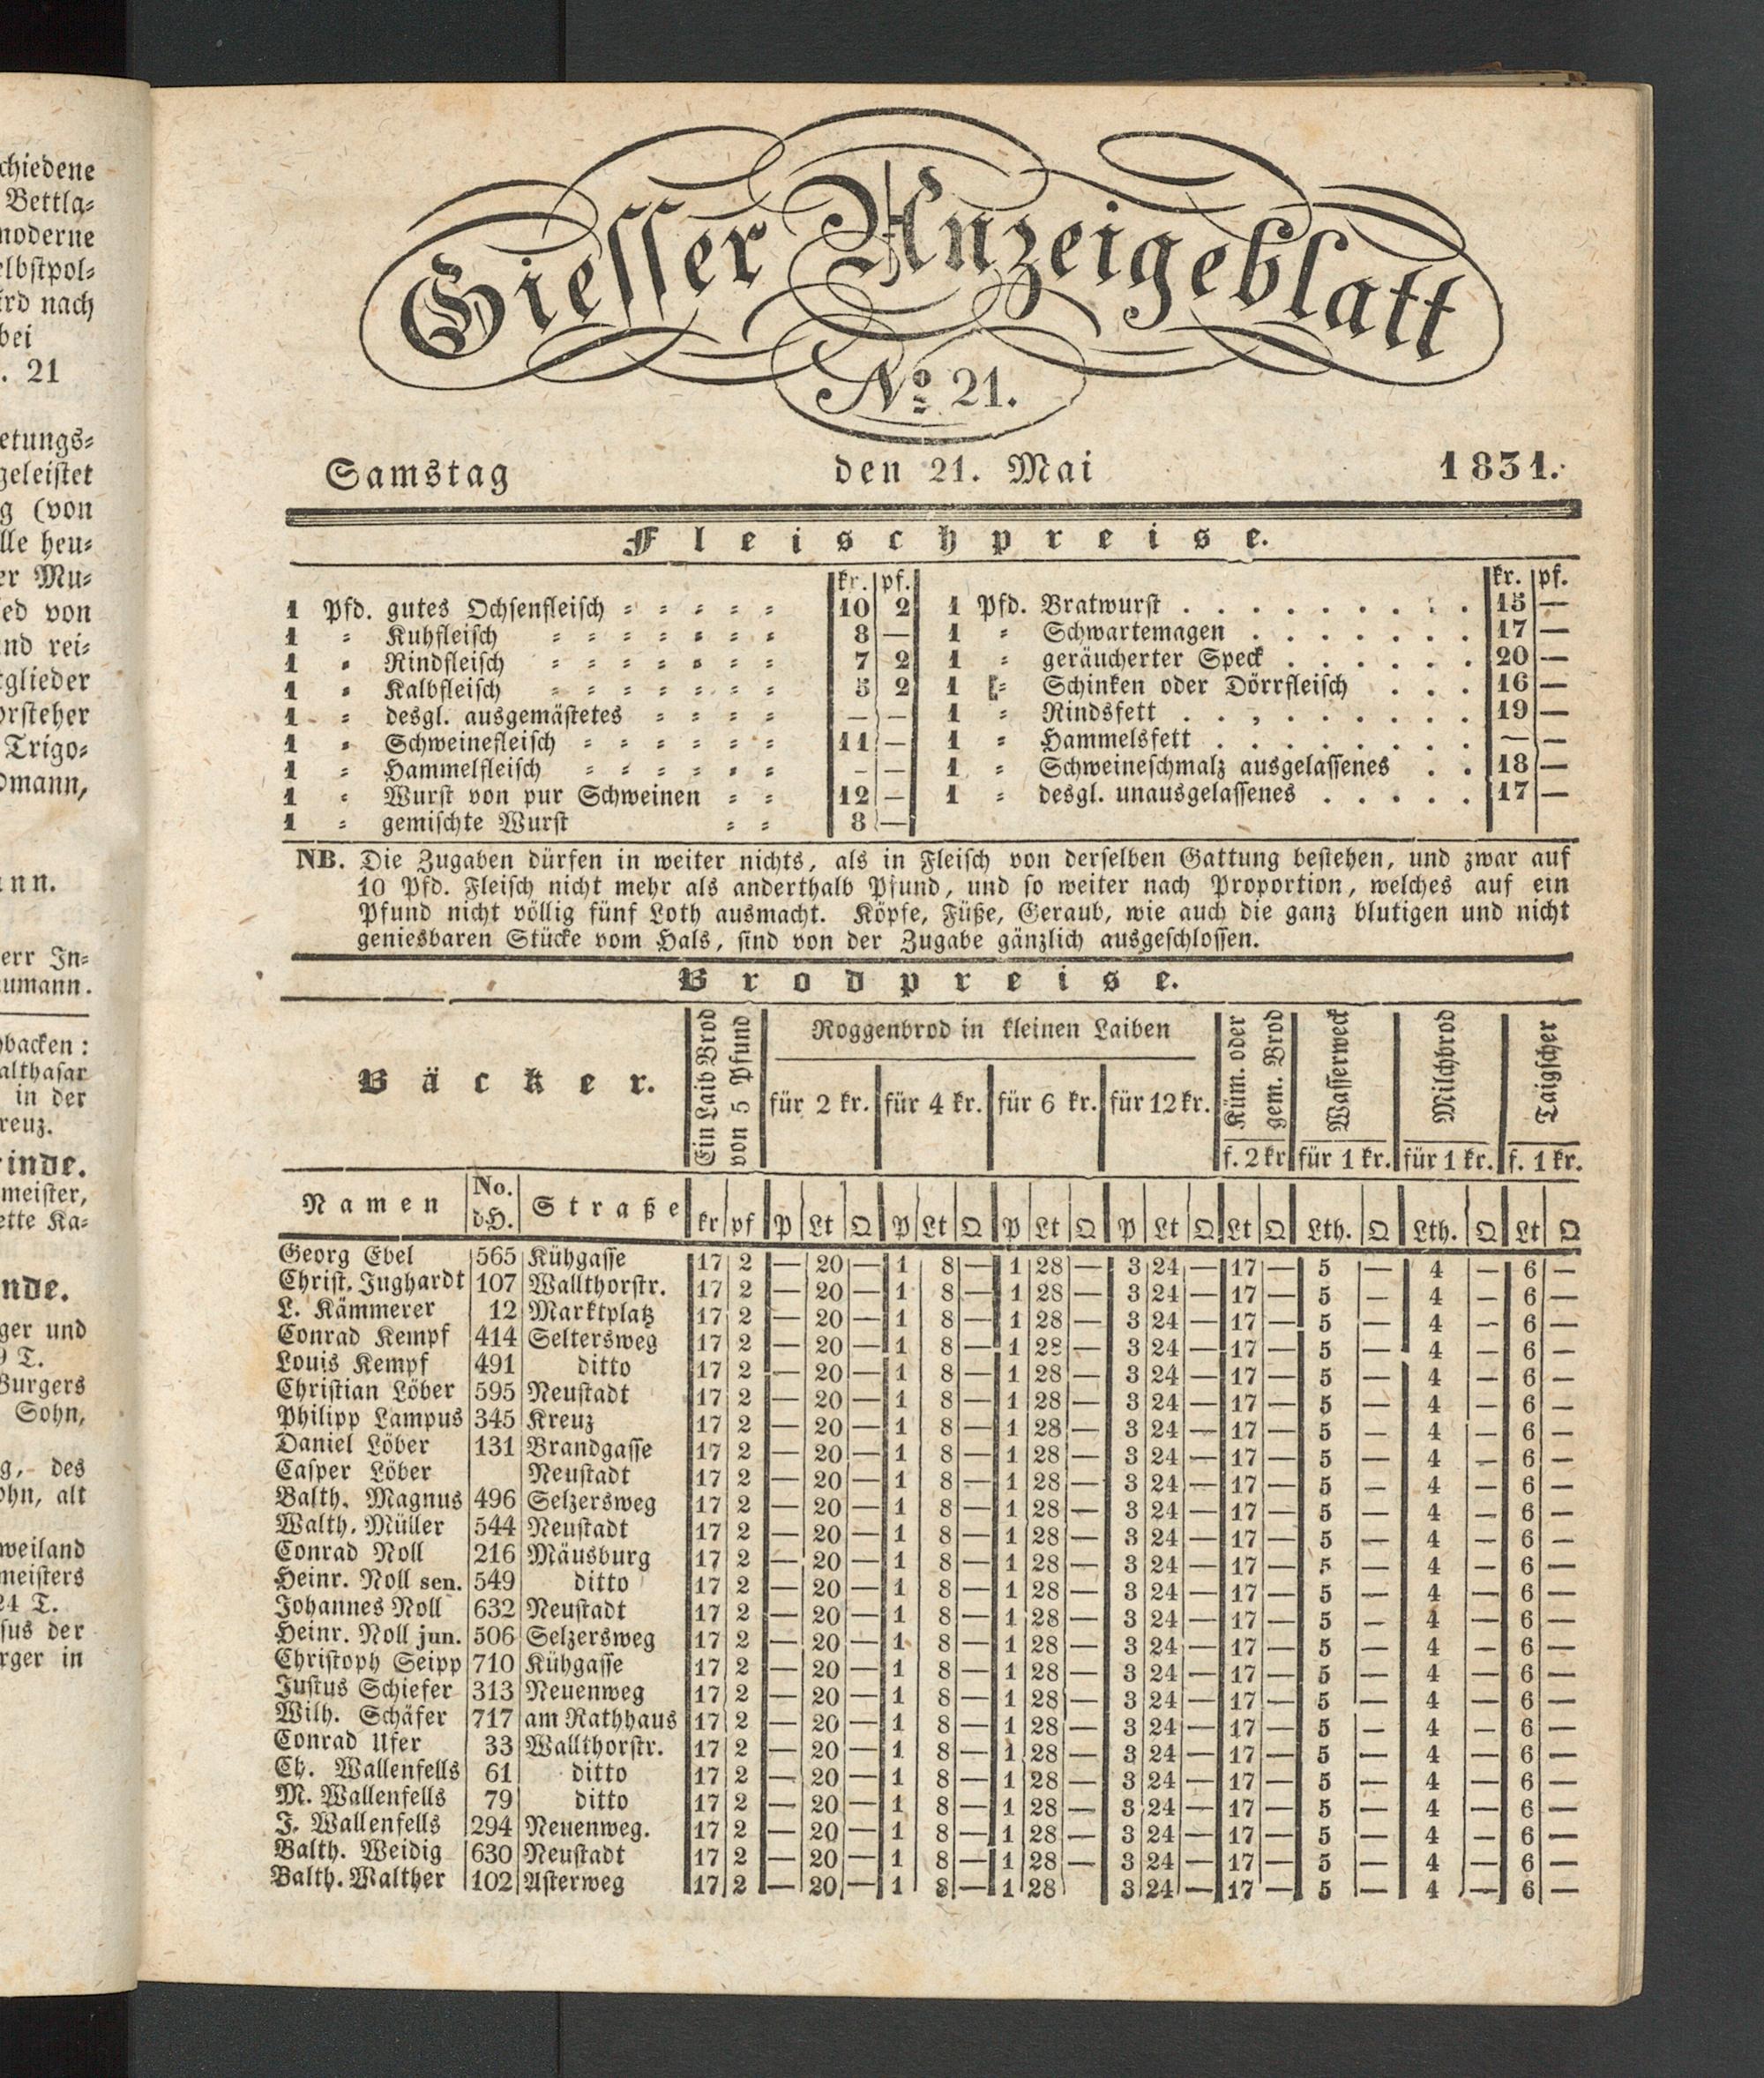 chiedene
Bettla⸗
moderne
elbstpol⸗
ird nach
bei
. 21
etungs⸗
geleistet
g (von
lle heu⸗
er Mu⸗
ied von
nd rei⸗
tglieder
orsteher
Trigo⸗
dmann,
nn.
err In⸗
umann.
backen:
althasar
in der
reuz.
inde.
meister,
ette Ka⸗
nde.
ger und
9 T.
Burgers
Sohn,
g, des
ohn, alt
weiland
meisters
24 T.
sus der
rger in
Giesser Anzeigeblatt
No 21.
Samstag den 21. Mai 1831.
Fleischpreise.
kr. pf. kr. pf.
1 Pfd. gutes Ochsenfleisch ⸗ ⸗ ⸗ ⸗ ⸗ 10 2 1 Pfd. Bratwurst . . . . . . . . . 15 —
1 ⸗ Kuhfleisch ⸗ ⸗ ⸗ ⸗ ⸗ ⸗ ⸗ 8 — 1 ⸗ Schwartemagen . . . . . . . 17 —
1 ⸗ Rindfleisch ⸗ ⸗ ⸗ ⸗ ⸗ ⸗ ⸗ 7 2 1 ⸗ geräucherter Speck . . . . . . 20 —
1 ⸗ Kalbfleisch ⸗ ⸗ ⸗ ⸗ ⸗ ⸗ ⸗ 5 2 1 ⸗ Schinken oder Dörrfleisch . . . 16 —
1 ⸗ desgl. ausgemästetes ⸗ ⸗ ⸗ ⸗ — — 1 ⸗ Rindsfett . . . . . . . . . 19 —
1 ⸗ Schweinefleisch ⸗ ⸗ ⸗ ⸗ ⸗ ⸗ 11 — 1 ⸗ Hammelsfett . . . . . . . . — —
1 ⸗ Hammelfleisch ⸗ ⸗ ⸗ ⸗ ⸗ ⸗ — — 1 ⸗ Schweineschmalz ausgelassenes . . 18 —
1 ⸗ Wurst von pur Schweinen ⸗ ⸗ 12 — 1 ⸗ desgl. unausgelassenes . . . . . 17 —
1 ⸗ gemischte Wurst ⸗ ⸗ 8 —
NB. Die Zugaben dürfen in weiter nichts, als in Fleisch von derselben Gattung bestehen, und zwar auf
10 Pfd. Fleisch nicht mehr als anderthalb Pfund, und so weiter nach Proportion, welches auf ein
Pfund nicht völlig fünf Loth ausmacht. Köpfe, Füße, Geraub, wie auch die ganz blutigen und nicht
geniesbaren Stücke vom Hals, sind von der Zugabe gänzlich ausgeschlossen.
Brodpreise.
Bäcker.
Ein Laib Brod
von 5 Pfund
Roggenbrod in kleinen Laiben
für 2 kr. für 4 kr. für 6 kr. für 12 kr.
Küm. oder
gem. Brod
f. 2 kr
Wasserweck
für 1 kr.
Milchbrod
für 1 kr.
Taigscher
f. 1 kr.
Namen No. dH. Straße kr pf P Lt Q P Lt Q P Lt Q P Lt Q Lt Q Lth. Q Lth. Q Lt Q
Georg Ebel 565 Kühgasse 17 2 — 20 — 1 8 — 1 28 — 3 24 — 17 — 5 — 4 — 6 —
Christ. Jughardt 107 Wallthorstr. 17 2 — 20 — 1 8 — 1 28 — 3 24 — 17 — 5 — 4 — 6 —
L. Kämmerer 12 Marktplatz 17 2 — 20 — 1 8 — 1 28 — 3 24 — 17 — 5 — 4 — 6 —
Conrad Kempf 414 Seltersweg 17 2 — 20 — 1 8 — 1 28 — 3 24 — 17 — 5 — 4 — 6 —
Louis Kempf 491 ditto 17 2 — 20 — 1 8 — 1 28 — 3 24 — 17 — 5 — 4 — 6 —
Christian Löber 595 Neustadt 17 2 — 20 — 1 8 — 1 28 — 3 24 — 17 — 5 — 4 — 6 —
Philipp Lampus 345 Kreuz 17 2 — 20 — 1 8 — 1 28 — 3 24 — 17 — 5 — 4 — 6 —
Daniel Löber 131 Brandgasse 17 2 — 20 — 1 8 — 1 28 — 3 24 — 17 — 5 — 4 — 6 —
Casper Löber Neustadt 17 2 — 20 — 1 8 — 1 28 — 3 24 — 17 — 5 — 4 — 6 —
Balth. Magnus 496 Selzersweg 17 2 — 20 — 1 8 — 1 28 — 3 24 — 17 — 5 — 4 — 6 —
Walth. Müller 544 Neustadt 17 2 — 20 — 1 8 — 1 28 — 3 24 — 17 — 5 — 4 — 6 —
Conrad Noll 216 Mäusburg 17 2 — 20 — 1 8 — 1 28 — 3 24 — 17 — 5 — 4 — 6 —
Heinr. Noll sen. 549 ditto 17 2 — 20 — 1 8 — 1 28 — 3 24 — 17 — 5 — 4 — 6 —
Johannes Noll 632 Neustadt 17 2 — 20 — 1 8 — 1 28 — 3 24 — 17 — 5 — 4 — 6 —
Heinr. Noll jun. 506 Selzersweg 17 2 — 20 — 1 8 — 1 28 — 3 24 — 17 — 5 — 4 — 6 —
Christoph Seipp 710 Kühgasse 17 2 — 20 — 1 8 — 1 28 — 3 24 — 17 — 5 — 4 — 6 —
Justus Schiefer 313 Neuenweg 17 2 — 20 — 1 8 — 1 28 — 3 24 — 17 — 5 — 4 — 6 —
Wilh. Schäfer 717 am Rathhaus 17 2 — 20 — 1 8 — 1 28 — 3 24 — 17 — 5 — 4 — 6 —
Conrad Ufer 33 Wallthorstr. 17 2 — 20 — 1 8 — 1 28 — 3 24 — 17 — 5 — 4 — 6 —
Ch. Wallenfells 61 ditto 17 2 — 20 — 1 8 — 1 28 — 3 24 — 17 — 5 — 4 — 6 —
M. Wallenfells 79 ditto 17 2 — 20 — 1 8 — 1 28 — 3 24 — 17 — 5 — 4 — 6 —
J. Wallenfells 294 Neuenweg. 17 2 — 20 — 1 8 — 1 28 — 3 24 — 17 — 5 — 4 — 6 —
Balth. Weidig 630 Neustadt 17 2 — 20 — 1 8 — 1 28 — 3 24 — 17 — 5 — 4 — 6 —
Balth. Walther 102 Asterweg 17 2 — 20 — 1 8 — 1 28 3 24 — 17 — 5 — 4 — 6 —